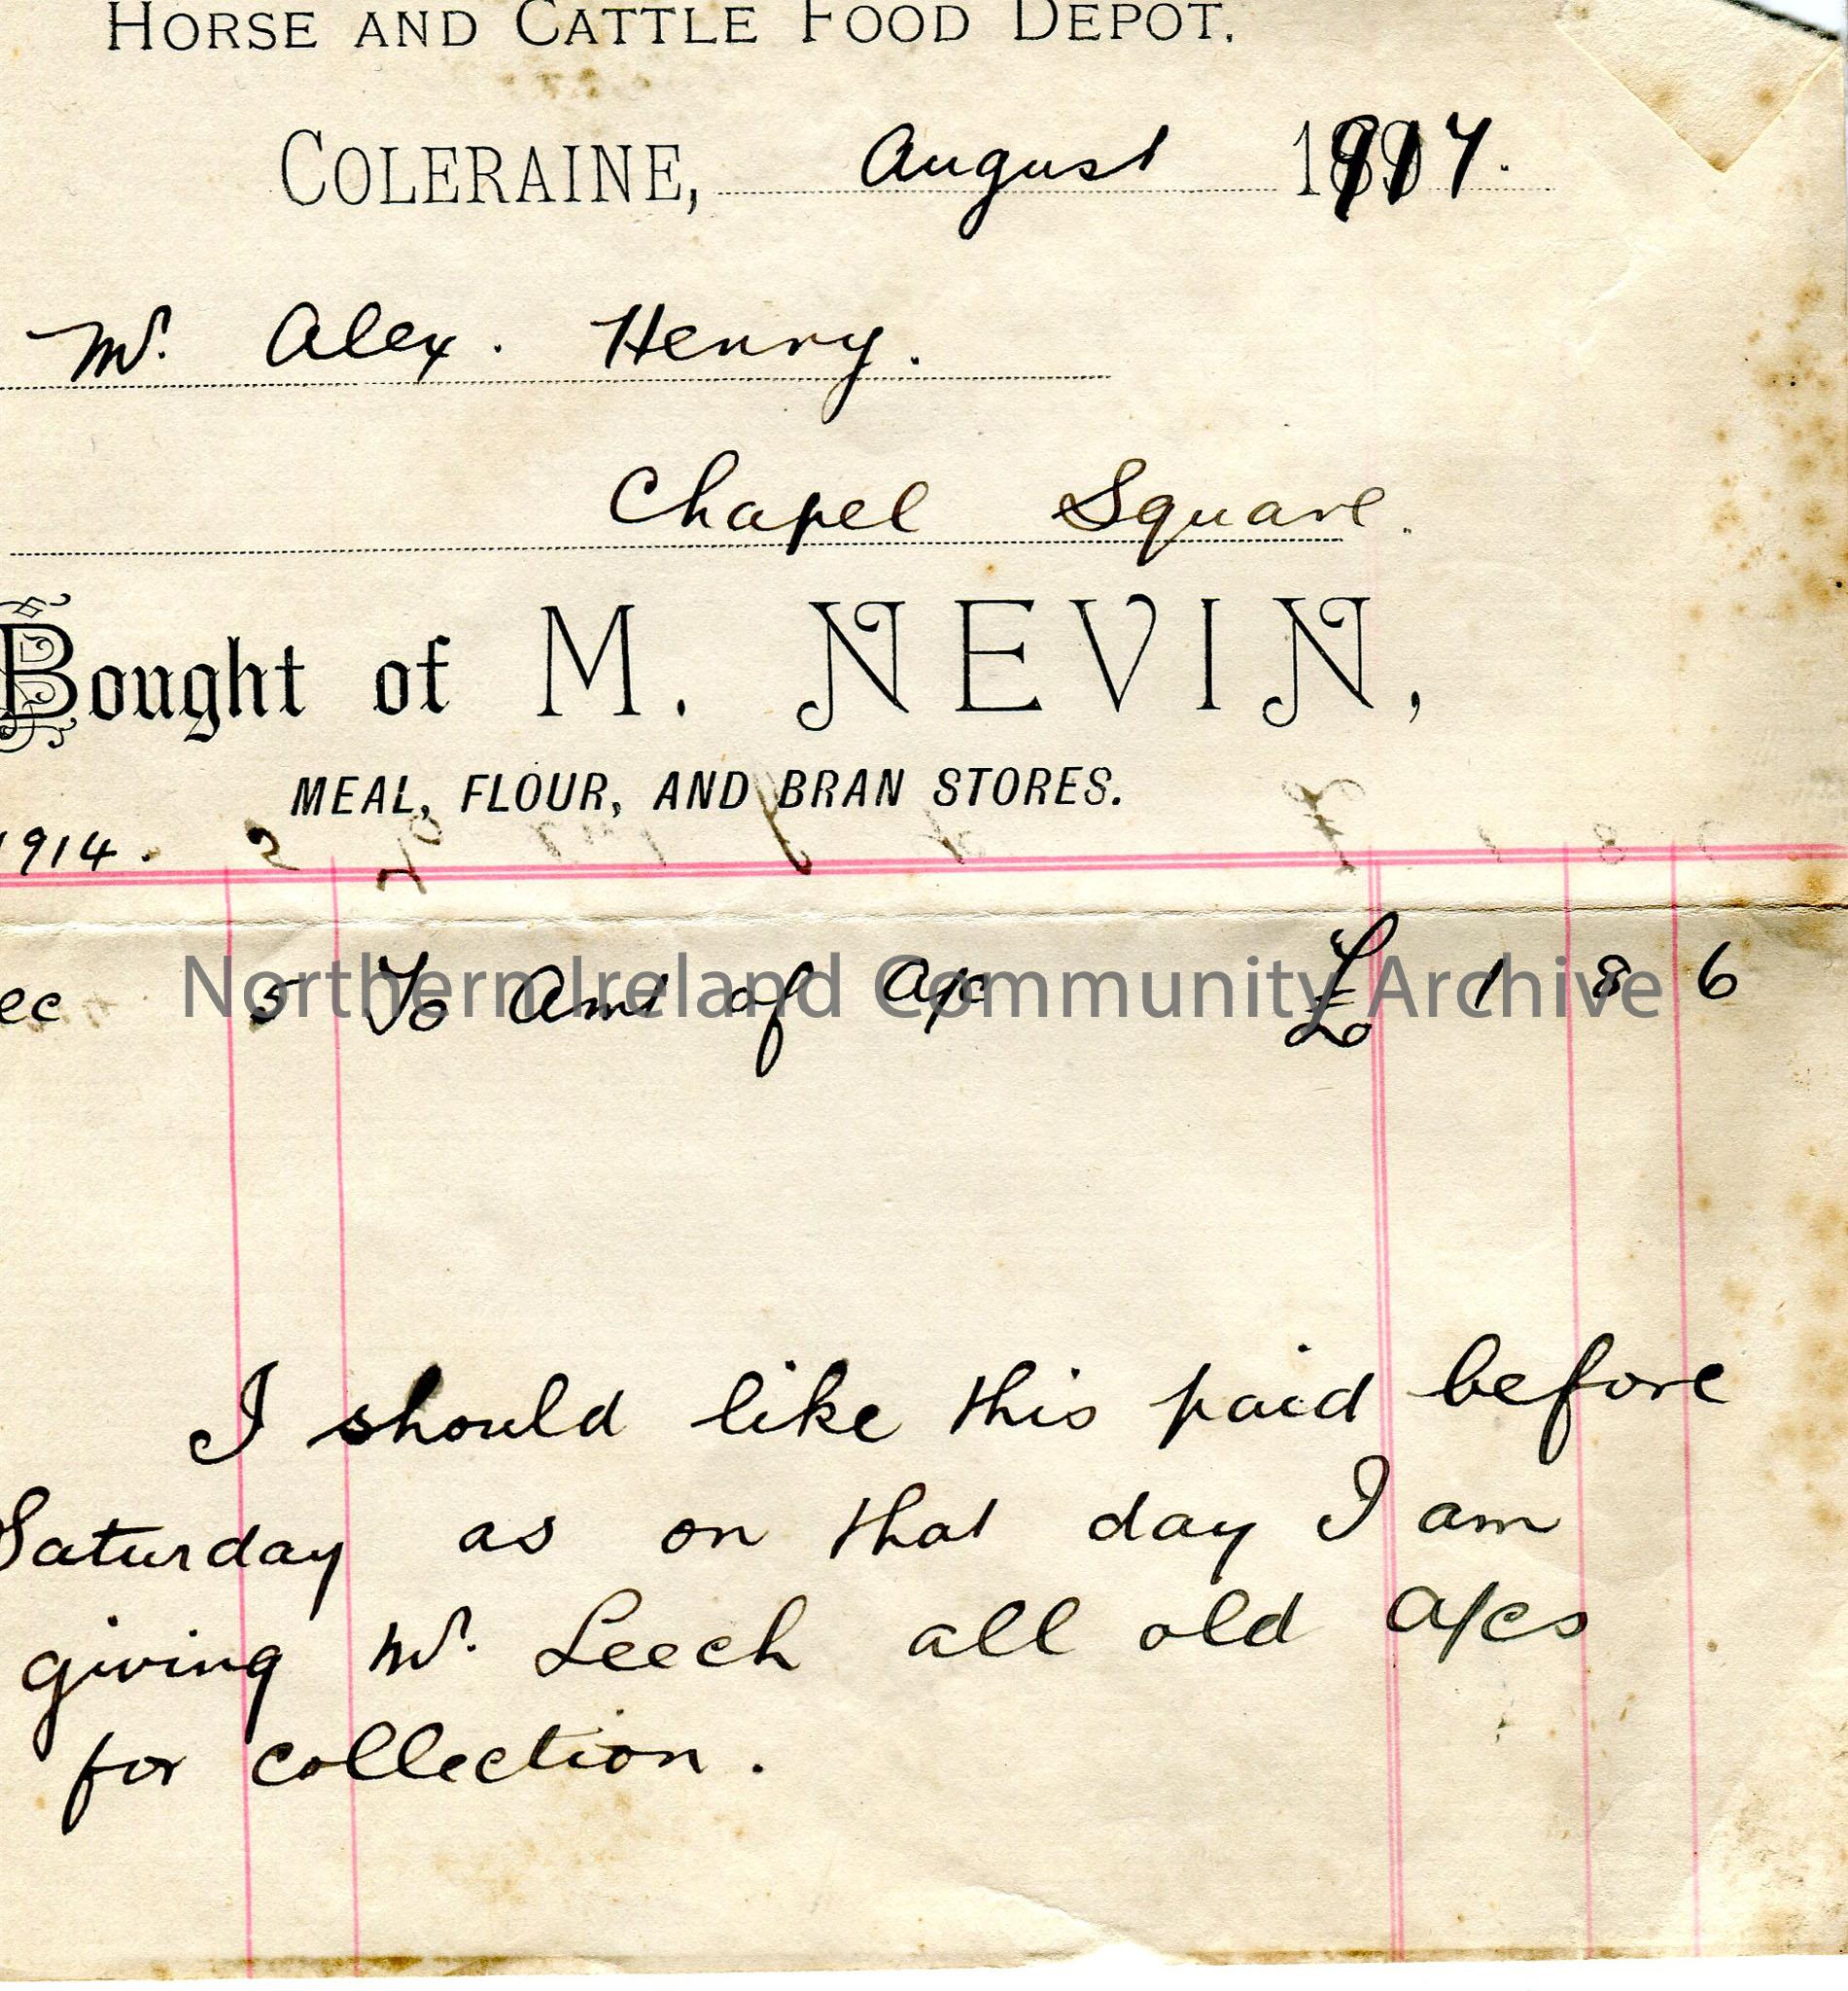 HORSE AND CATTLE FOOD DEPOT.
COLERAINE, August 1917.
Mr. Alex. Henry.
Chapel Square.
Bought of M. NEVIN,
MEAL, FLOUR, AND BRAN STORES.
1914.
ec 5 To Amt of A/c £ 1 8 6
Northern Ireland Community Archive
I should like this paid before
Saturday as on that day I am
giving Mr. Leech all old A/cs
for collection.